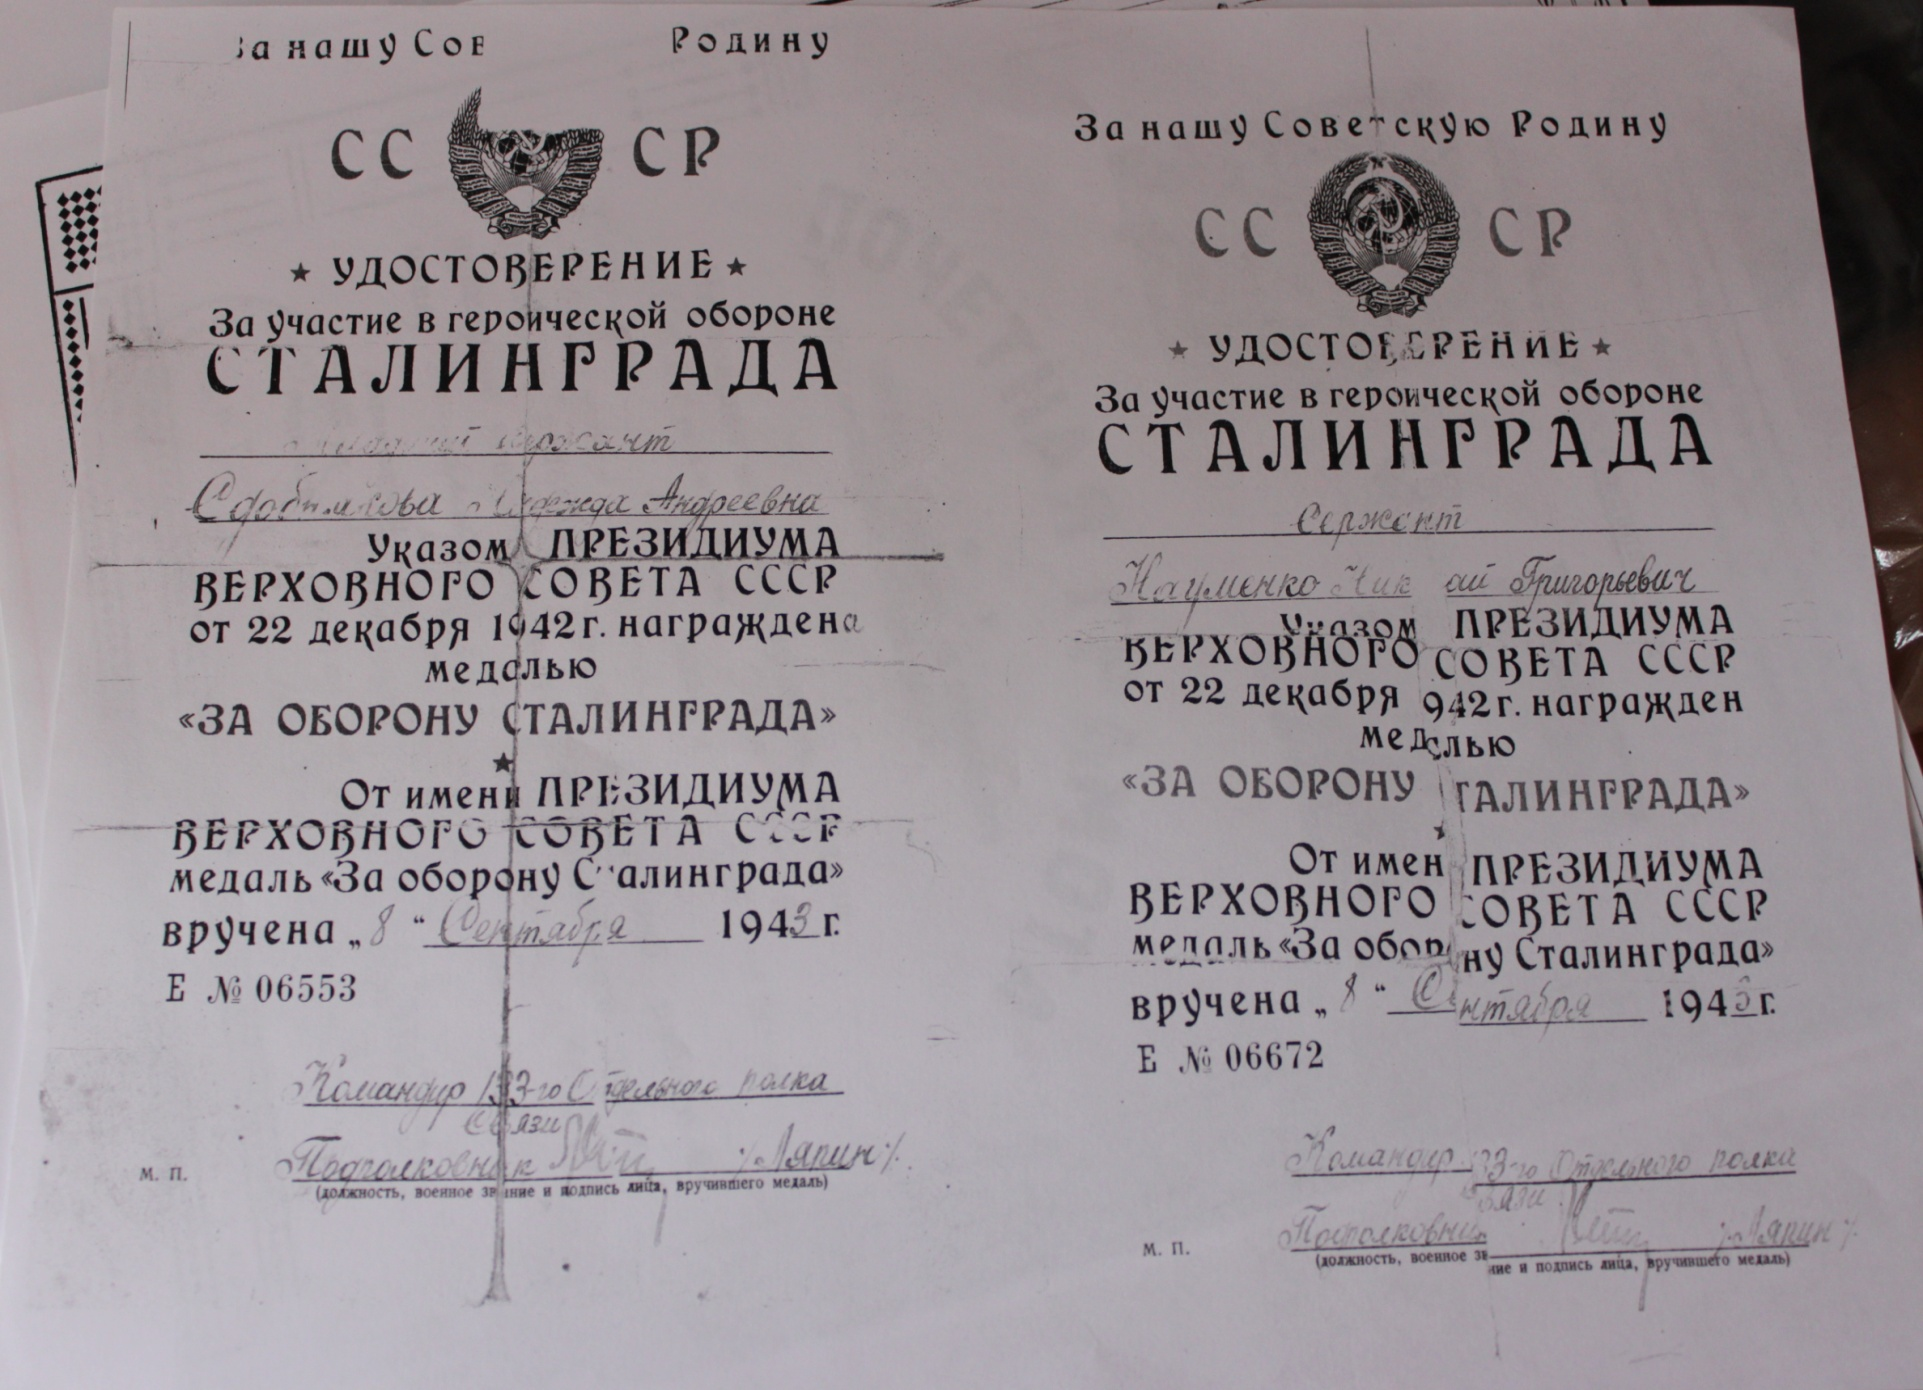 За нашу Сов Родину
СС СР
★ УДОСТОВЕРЕНИЕ ★
За участие в героической обороне
СТАЛИНГРАДА
Младший сержант
Надежда Андреевна
Указом ПРЕЗИДИУМА
ВЕРХОВНОГО СОВЕТА СССР
от 22 декабря 1942 г. награждена
медалью
«ЗА ОБОРОНУ СТАЛИНГРАДА»
★
От имени ПРЕЗИДИУМА
ВЕРХОВНОГО СОВЕТА СССР
медаль «За оборону Сталинграда»
вручена „8“ Сентября 1943 г.
Е № 06553
Командир 133-го Отдельного полка
связи
Подполковник /Ляпин/
м. п.
(должность, военное звание и подпись лица, вручившего медаль)
За нашу Советскую Родину
СС СР
★ УДОСТОВЕРЕНИЕ ★
За участие в героической обороне
СТАЛИНГРАДА
Сержант
Науменко Ник ай Григорьевич
Указом ПРЕЗИДИУМА
ВЕРХОВНОГО СОВЕТА СССР
от 22 декабря 942 г. награжден
медалью
«ЗА ОБОРОНУ ТАЛИНГРАДА»
От имен ПРЕЗИДИУМА
ВЕРХОВНОГО СОВЕТА СССР
медаль «За оборону Сталинграда»
вручена „8“ Сентября 1943 г.
Е № 06672
Командир 133-го Отдельного полка
связи
Подполковник /Ляпин/
м. п.
(должность, военное звание и подпись лица, вручившего медаль)